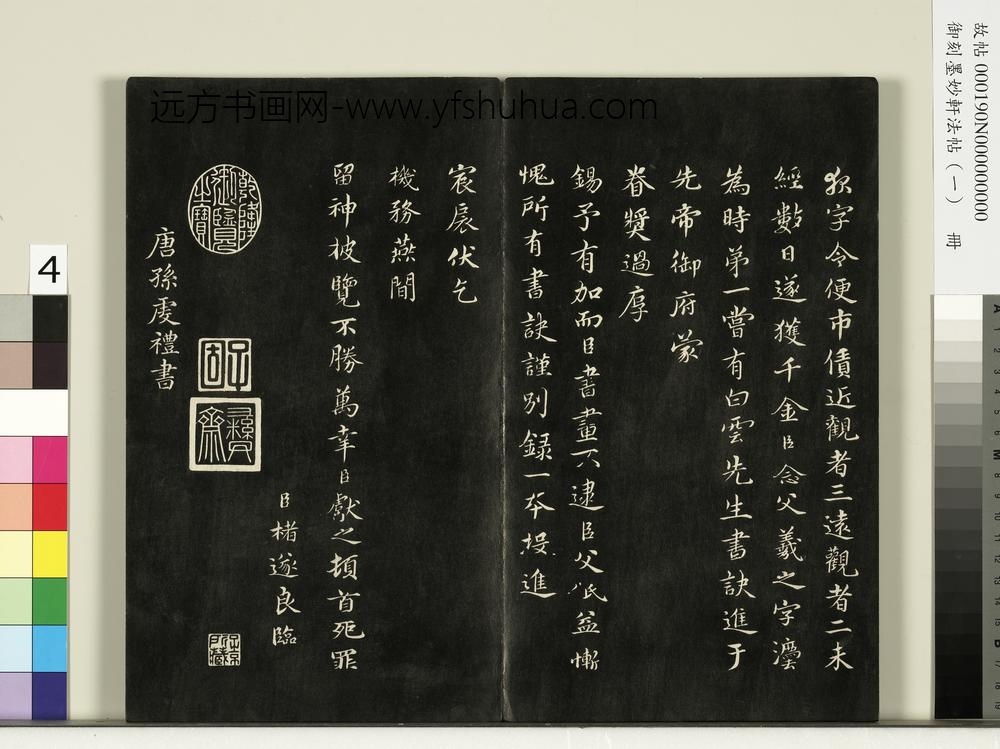 故帖 000190N000000000
御刻墨妙軒法帖(一) 冊
远方书画网-www.yfshuhua.com
字令便市債近觀者三遠觀者二未
經數日遂獲千金臣念父羲之字法
為時第一嘗有白雲先生書訣進于
先帝御府蒙
眷獎過厚
錫予有加而臣書畫不逮臣父祇益慚
愧所有書訣謹別錄一本投進
宸扆伏乞
機務燕間
留神披覽不勝萬幸臣獻之頓首死罪
臣楮遂良臨
乾隆御覽之寶
子固
彝齋
唐孫虔禮書
4